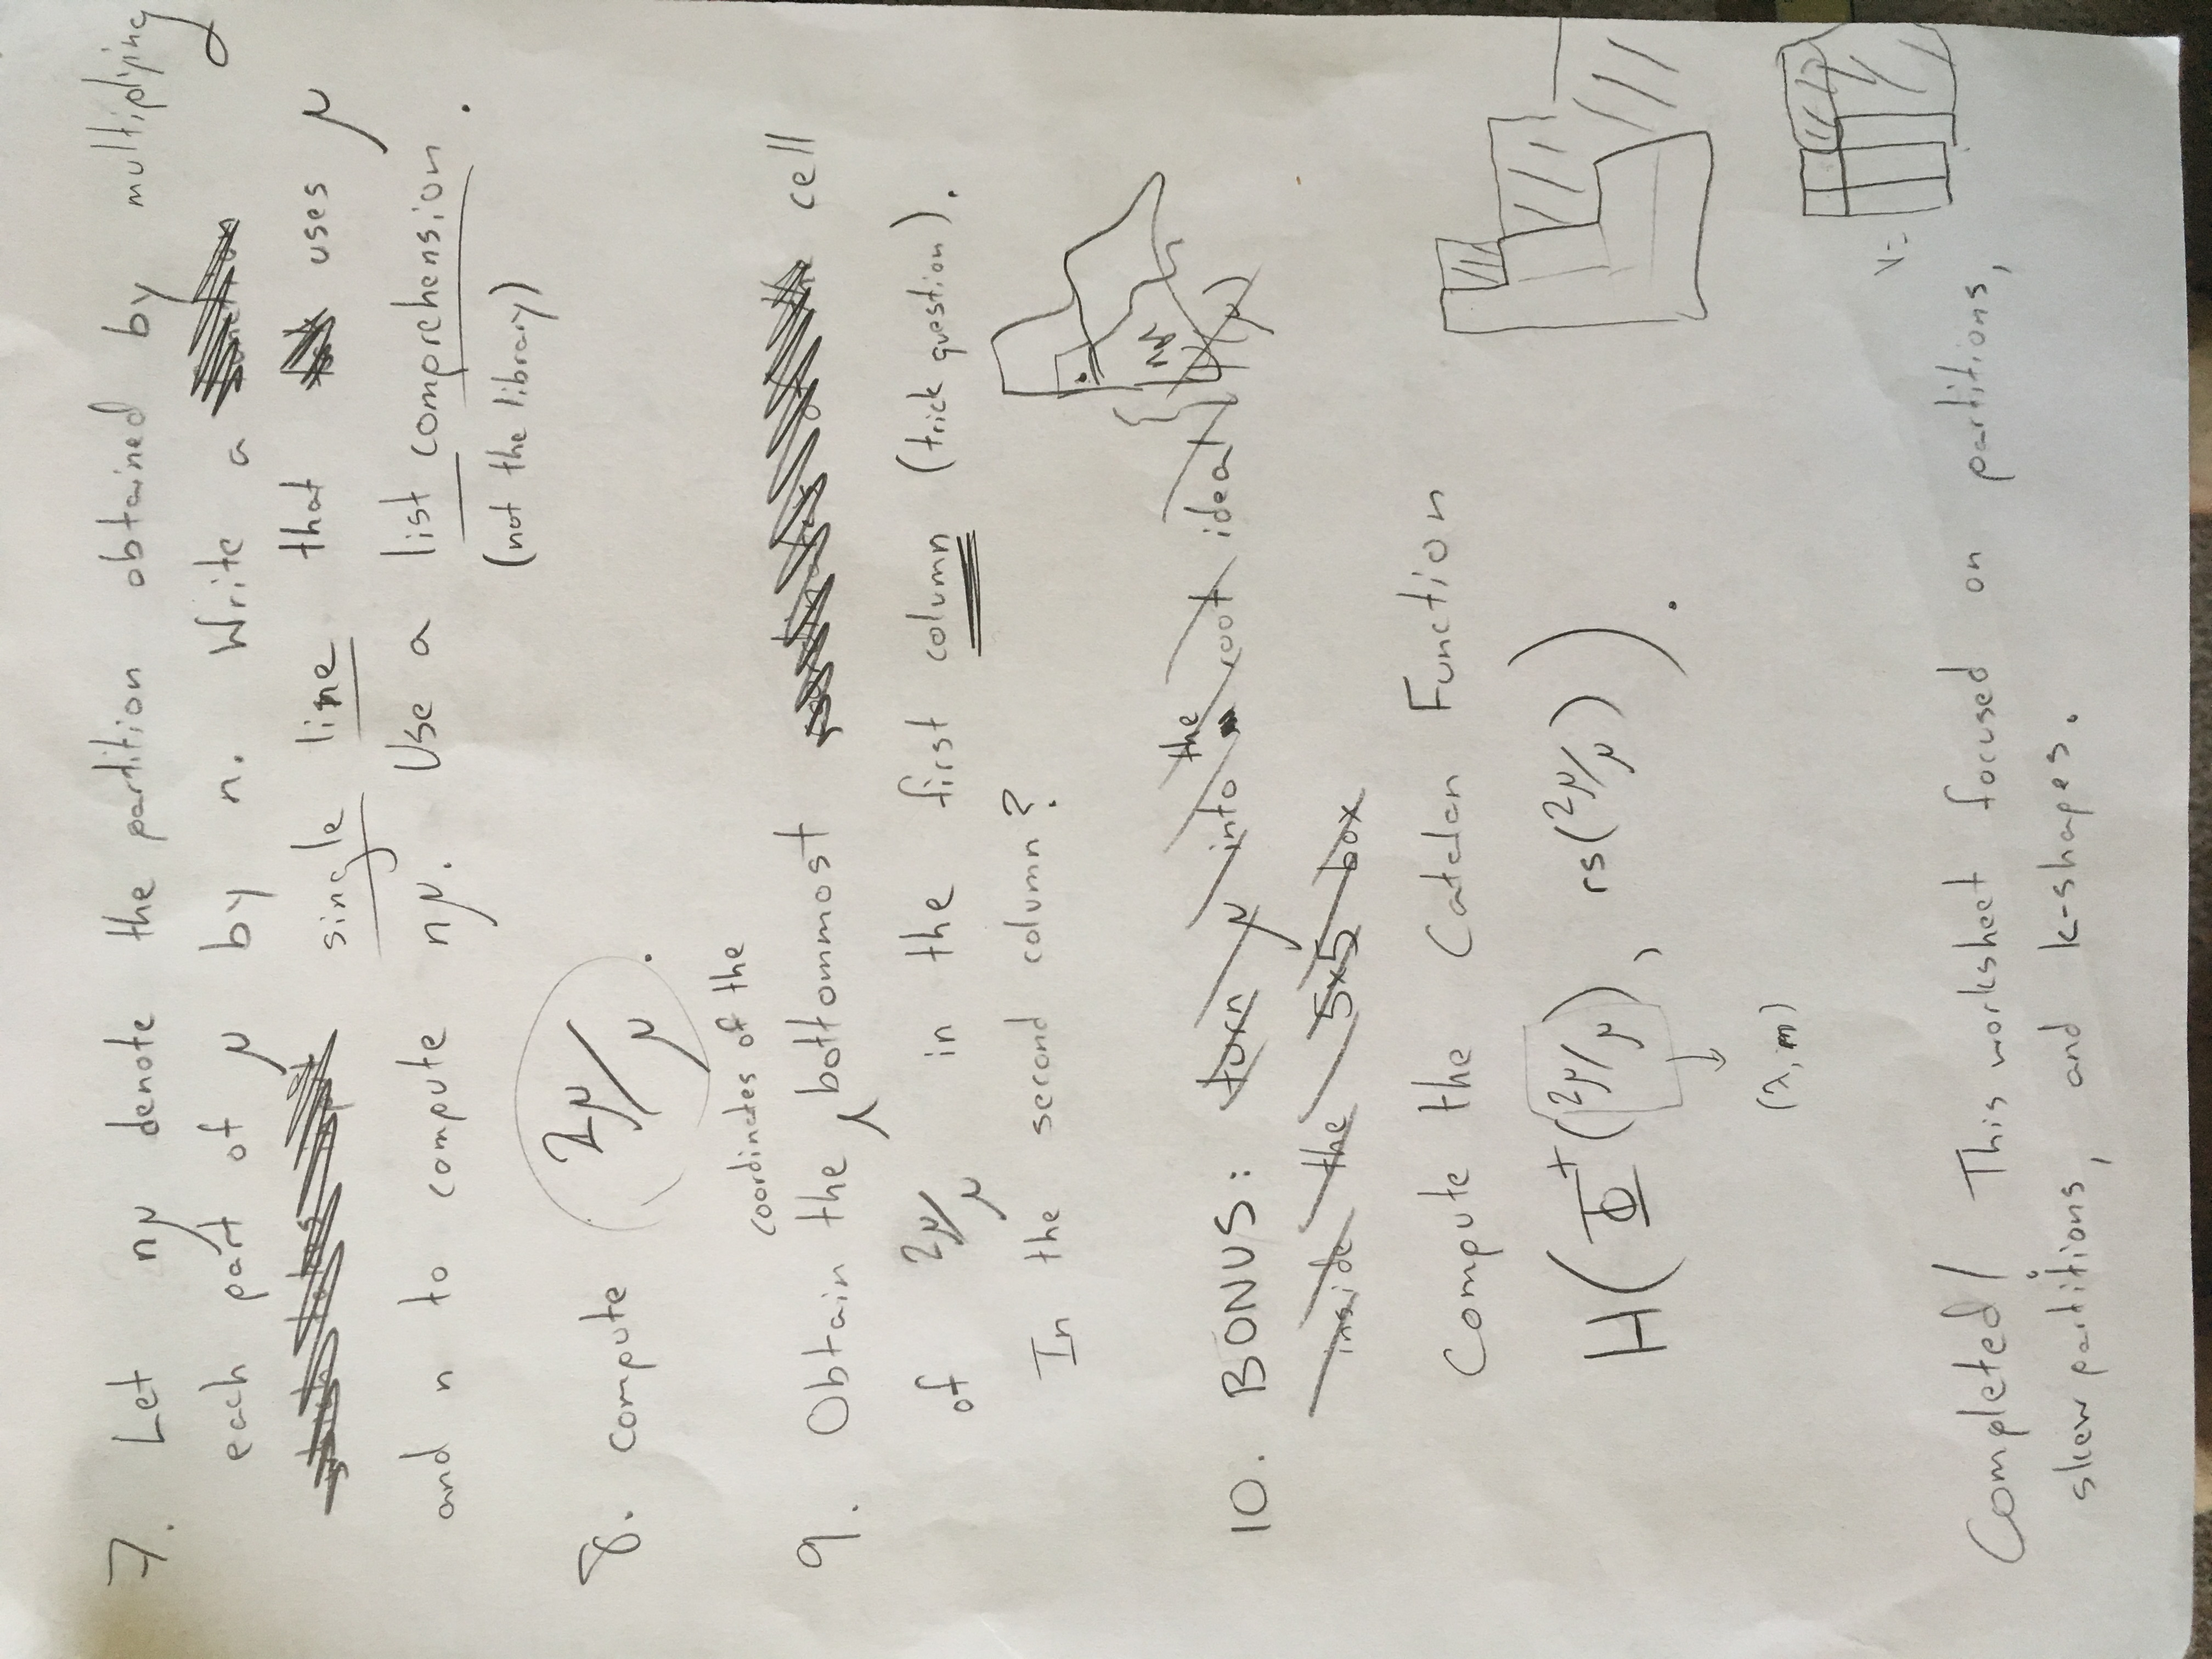 7. Let nμ denote the partition obtained by multiplying
each part of μ by n. Write a
single line that uses μ
and n to compute nμ. Use a list comprehension.
(not the library)
8. compute 2μ/μ.
coordinates of the
9. Obtain the bottommost cell
of 2μ/μ in the first column (trick question).
In the second column?
the
10. BONUS: turn μ into root ideal
inside the 5x5 box
Compute the Catalan Function
H(Φ⁺(2μ/μ), rs(2μ/μ)).
(λ, m)
Completed! This worksheet focused on partitions,
skew partitions, and k-shapes.